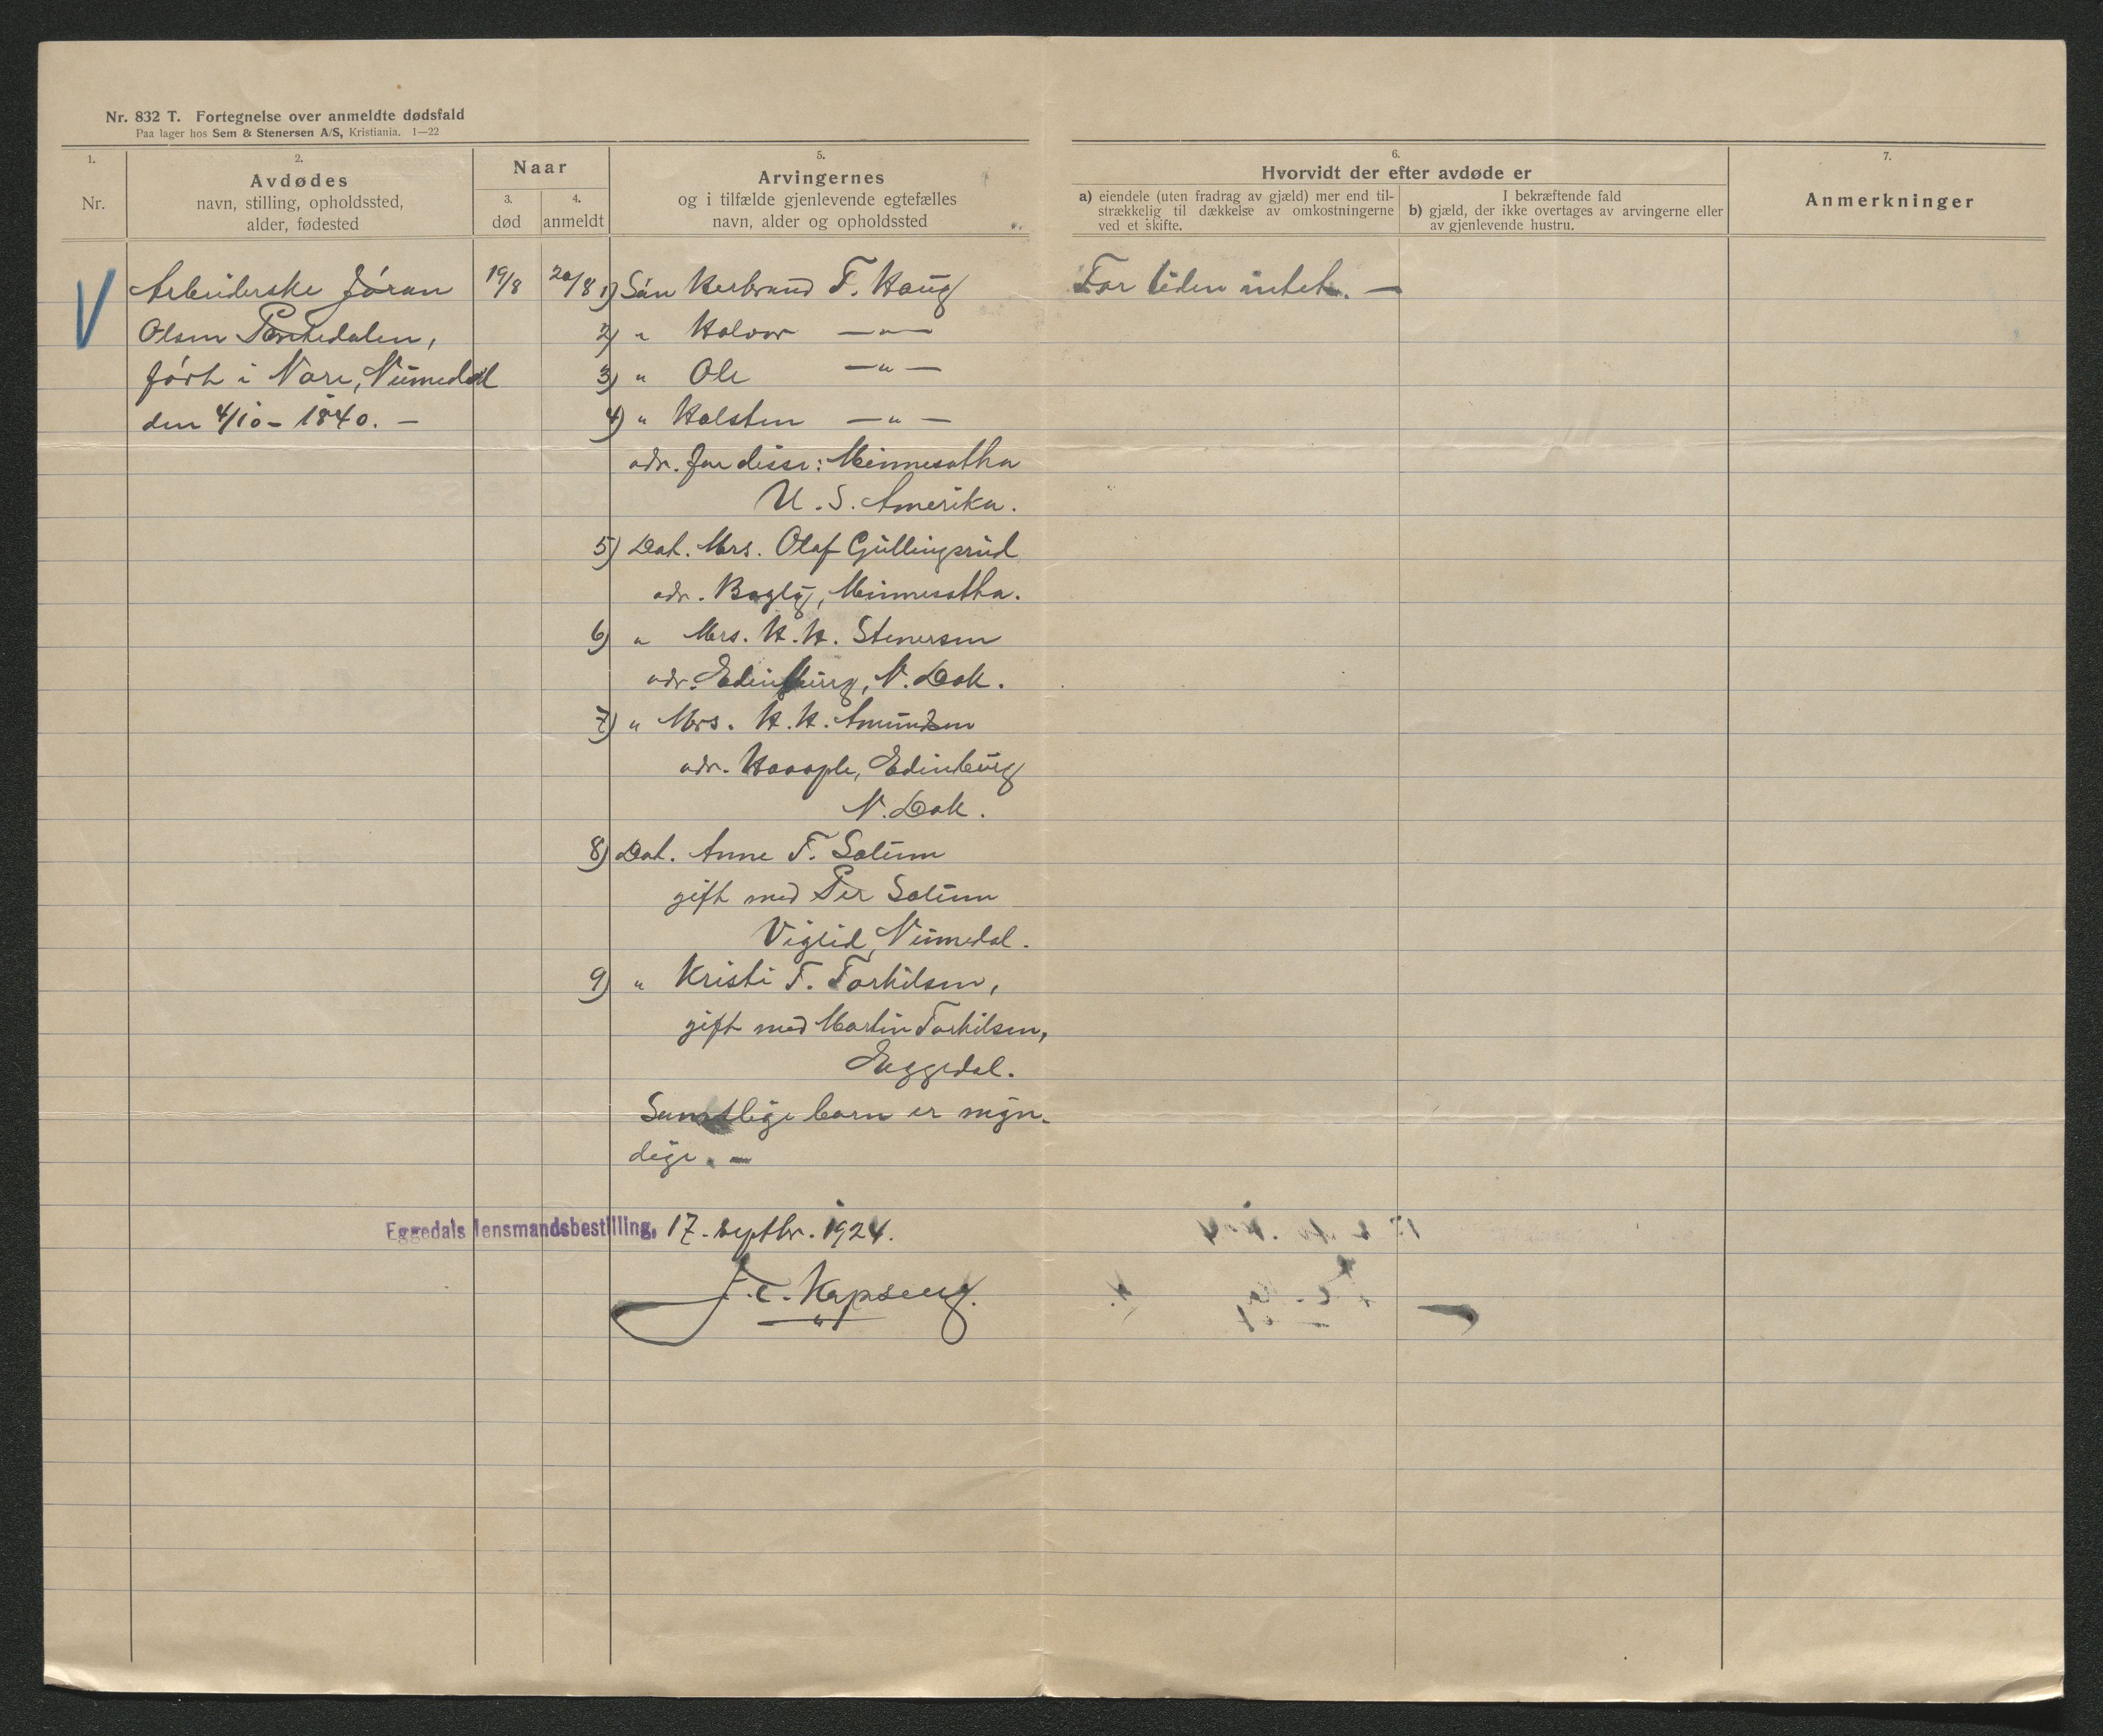 Nr. 832 T. Fortegnelse over anmeldte dødsfald
Paa lager hos Sem & Stenersen A/S, Kristiania. 1—22
1.
Nr.
2.
Avdødes
navn, stilling, opholdssted,
alder, fødested
Naar
3.
død
4.
anmeldt
5.
Arvingernes
og i tilfælde gjenlevende egtefælles
navn, alder og opholdssted
6.
Hvorvidt der efter avdøde er
a) eiendele (uten fradrag av gjæld) mer end til-
strækkelig til dækkelse av omkostningerne
ved et skifte.
I bekræftende fald
b) gjæld, der ikke overtages av arvingerne eller
av gjenlevende hustru.
7.
Anmerkninger
V
Arbeiderske Jøran
Olsen
født i Nore, Numedal
den 4/10 - 1840. —
19/8
20/8
1) Søn Herbrand F. Haug
2) " Halvor —"—
3) " Ole —"—
4) " Halsten —"—
adr. for disse: Minnesotha
U. S. Amerika.
5) Dat. Mrs. Olaf Gullingsrud
adr. Bagly, Minnesotha.
6) " Mrs. H. H. Stenersen
adr. Edinburg, N. Dak.
7) " Mrs. H. H. Amundsen
adr. Hoople, Edinburg
N. Dak.
8) Dat. Anne F. Solum
gift med Per Solum
Viglid, Numedal.
9) " Kristi F. Torkilsen,
gift med Martin Torkilsen,
Eggedal.
Samtlige barn er myn-
dige. —
Eggedals lensmandsbestilling, 17. septbr. 1924.
For tiden intet. —